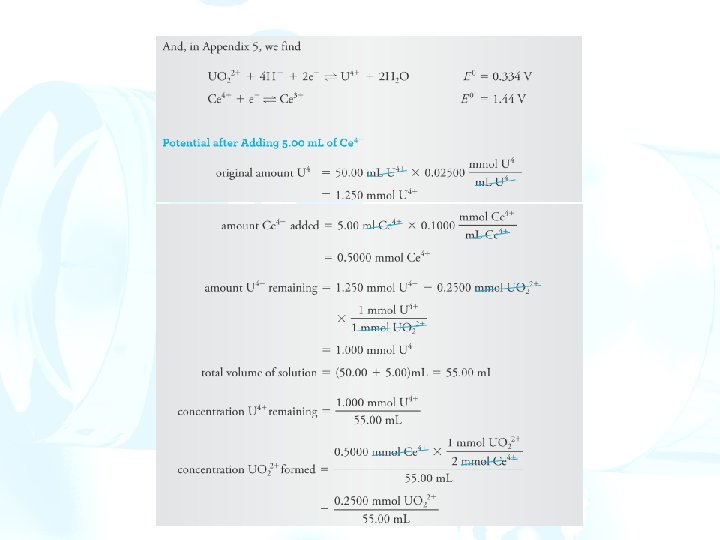 And, in Appendix 5, we find
UO₂²⁺ + 4H⁺ + 2e⁻ ⇌ U⁴⁺ + 2H₂O E⁰ = 0.334 V
Ce⁴⁺ + e⁻ ⇌ Ce³⁺ E⁰ = 1.44 V
Potential after Adding 5.00 mL of Ce⁴⁺
original amount U⁴⁺ = 50.00 mL U⁴⁺ × 0.02500 mmol U⁴⁺ / mL U⁴⁺
= 1.250 mmol U⁴⁺
amount Ce⁴⁺ added = 5.00 ml Ce⁴⁺ × 0.1000 mmol Ce⁴⁺ / mL Ce⁴⁺
= 0.5000 mmol Ce⁴⁺
amount U⁴⁺ remaining = 1.250 mmol U⁴⁺ − 0.2500 mmol UO₂²⁺
× 1 mmol U⁴⁺ / 1 mmol UO₂²⁺
= 1.000 mmol U⁴
total volume of solution = (50.00 + 5.00)mL = 55.00 mL
concentration U⁴⁺ remaining = 1.000 mmol U⁴⁺ / 55.00 mL
concentration UO₂²⁺ formed = 0.5000 mmol Ce⁴⁺ × 1 mmol UO₂²⁺ / 2 mmol Ce⁴⁺ / 55.00 mL
= 0.2500 mmol UO₂²⁺ / 55.00 mL